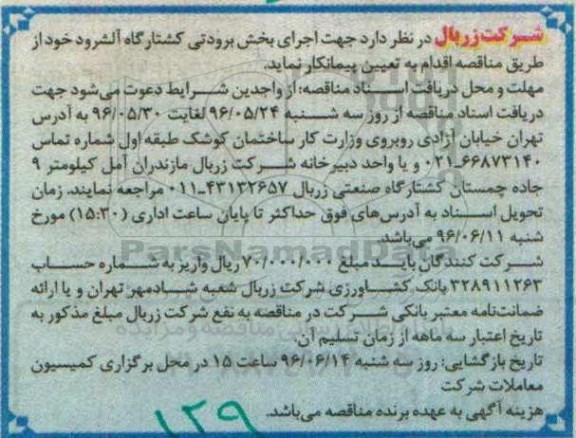 شرکت زربال در نظر دارد جهت اجرای بخش برودتی کشتارگاه آلشرود خود از
طریق مناقصه اقدام به تعیین پیمانکار نماید.
مهلت و محل دریافت اسناد مناقصه: از واجدین شرایط دعوت می‌شود جهت
دریافت اسناد مناقصه از روز سه شنبه ۹۶/۰۵/۲۴ لغایت ۹۶/۰۵/۳۰ به آدرس
تهران خیابان آزادی روبروی وزارت کار ساختمان کوشک طبقه اول شماره تماس
۰۲۱-۶۶۸۷۳۱۴۰ و یا واحد دبیرخانه شرکت زربال مازندران آمل کیلومتر ۹
جاده چمستان کشتارگاه صنعتی زربال ۰۱۱-۴۳۱۳۲۶۵۷ مراجعه نمایند. زمان
تحویل اسناد به آدرس‌های فوق حداکثر تا پایان ساعت اداری (۱۵:۳۰) مورخ
شنبه ۹۶/۰۶/۱۱ می‌باشد.
شرکت کنندگان باید مبلغ ۷۰/۰۰۰/۰۰۰ ریال واریز به شماره حساب
۳۲۸۹۱۱۲۶۳ بانک کشاورزی شرکت زربال شعبه شادمهر تهران و یا ارائه
ضمانت‌نامه معتبر بانکی شرکت در مناقصه به نفع شرکت زربال مبلغ مذکور به
تاریخ اعتبار سه ماهه از زمان تسلیم آن.
تاریخ بازگشایی: روز سه شنبه ۹۶/۰۶/۱۴ ساعت ۱۵ در محل برگزاری کمیسیون
معاملات شرکت
هزینه آگهی به عهده برنده مناقصه می‌باشد.
۱۲۹
ParsNamadData